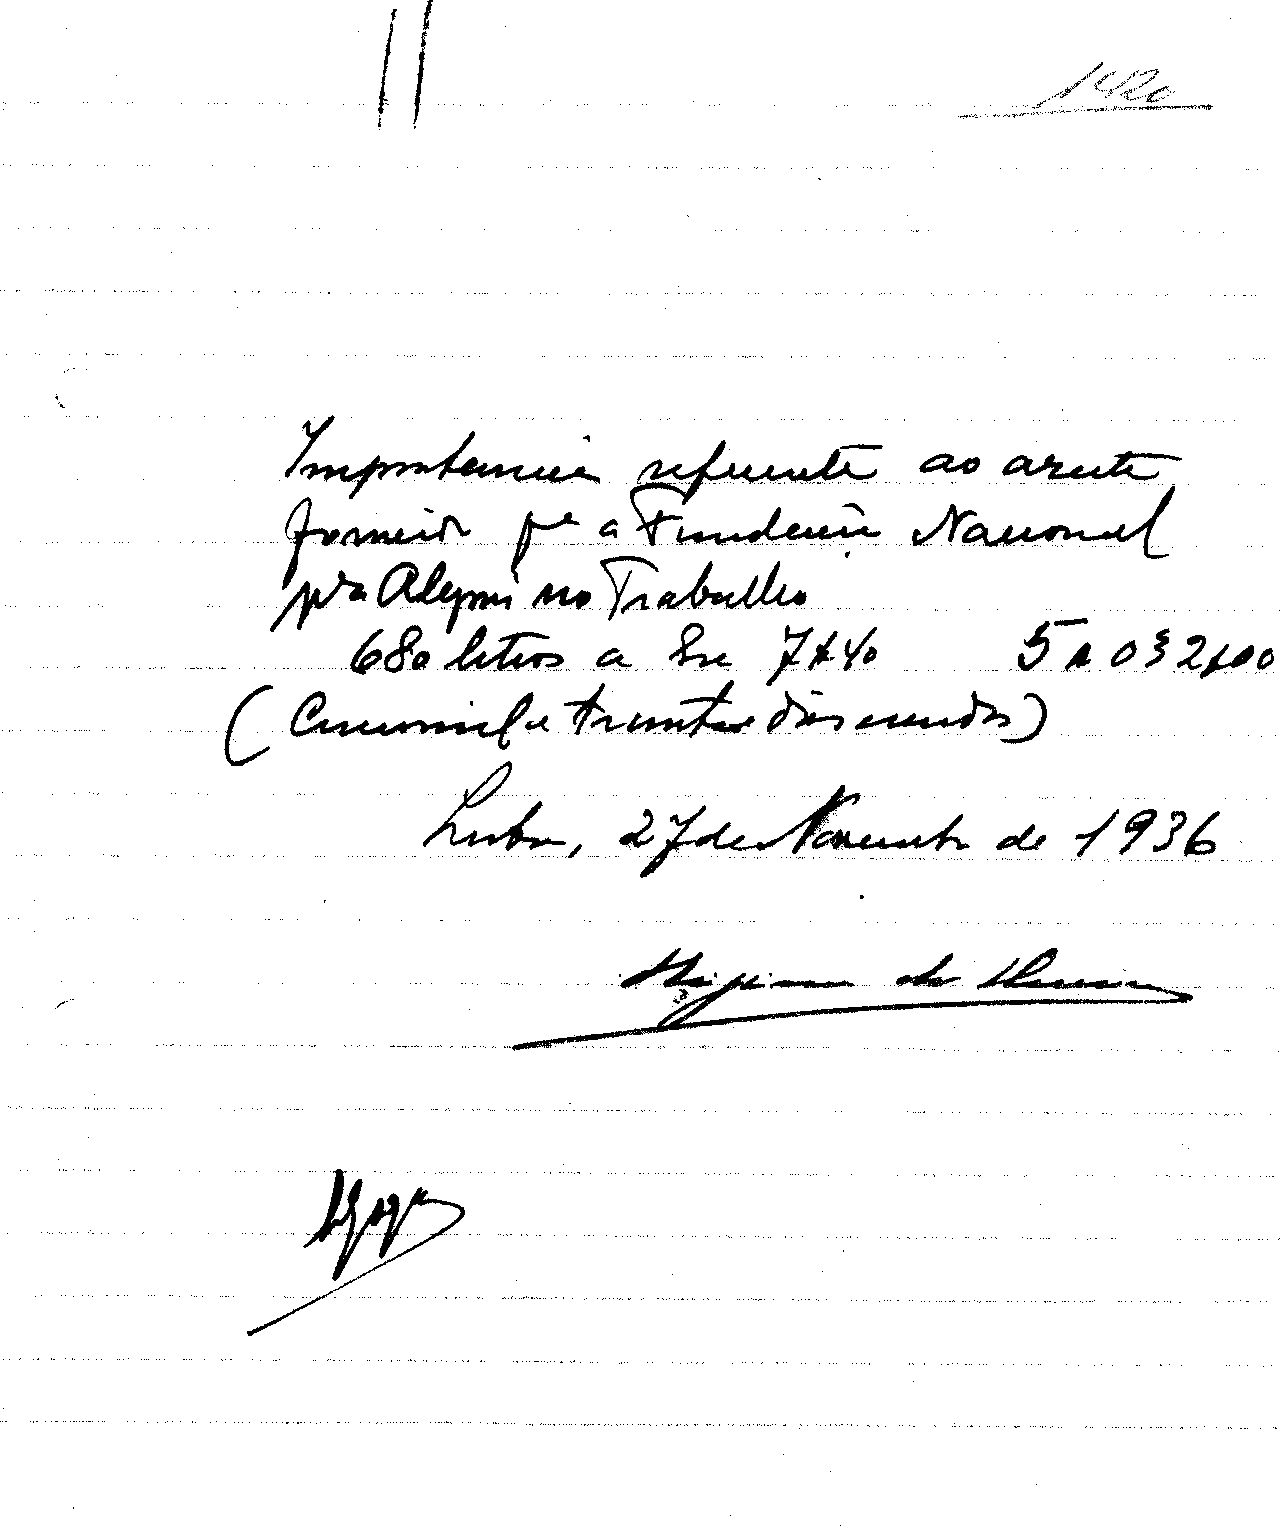 1420
Importancia referente ao azeite
fornecido pª a Fundação Nacional
pra Alegria no Trabalho
680 litros a Esc 7$40 5.032$00
(Cincomil e trinta e dois escudos)
Lisboa, 27 de Novembro de 1936